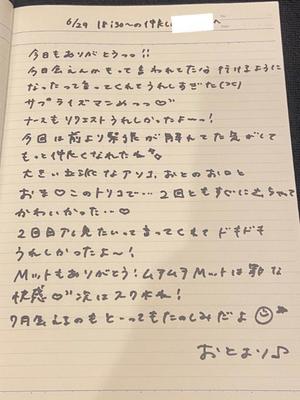 6/29 18:30〜の仲良し
今日もありがとうっっ!!
今日会えんかもって言われてたな 行けるように
なったって言ってくれてうれしすぎた
サプライズマンめっっ♡
ナースもリクエストうれしかったよー!
今回は前より緊張が解れてた気がして
もっと仲良くなれたね
大きい立派なアソコ、おとのお口と
おま♡このトリコで… 2回ともすぐに
かわいかった‥♡
2回目アレ見たいって言ってくれて ドキドキ
うれしかったよ〜!
Mットもありがとう! ムアムア Mットは
快感♡次はスク水ね!
7月会えるのもとーってもたのしみだよ
おとより♪